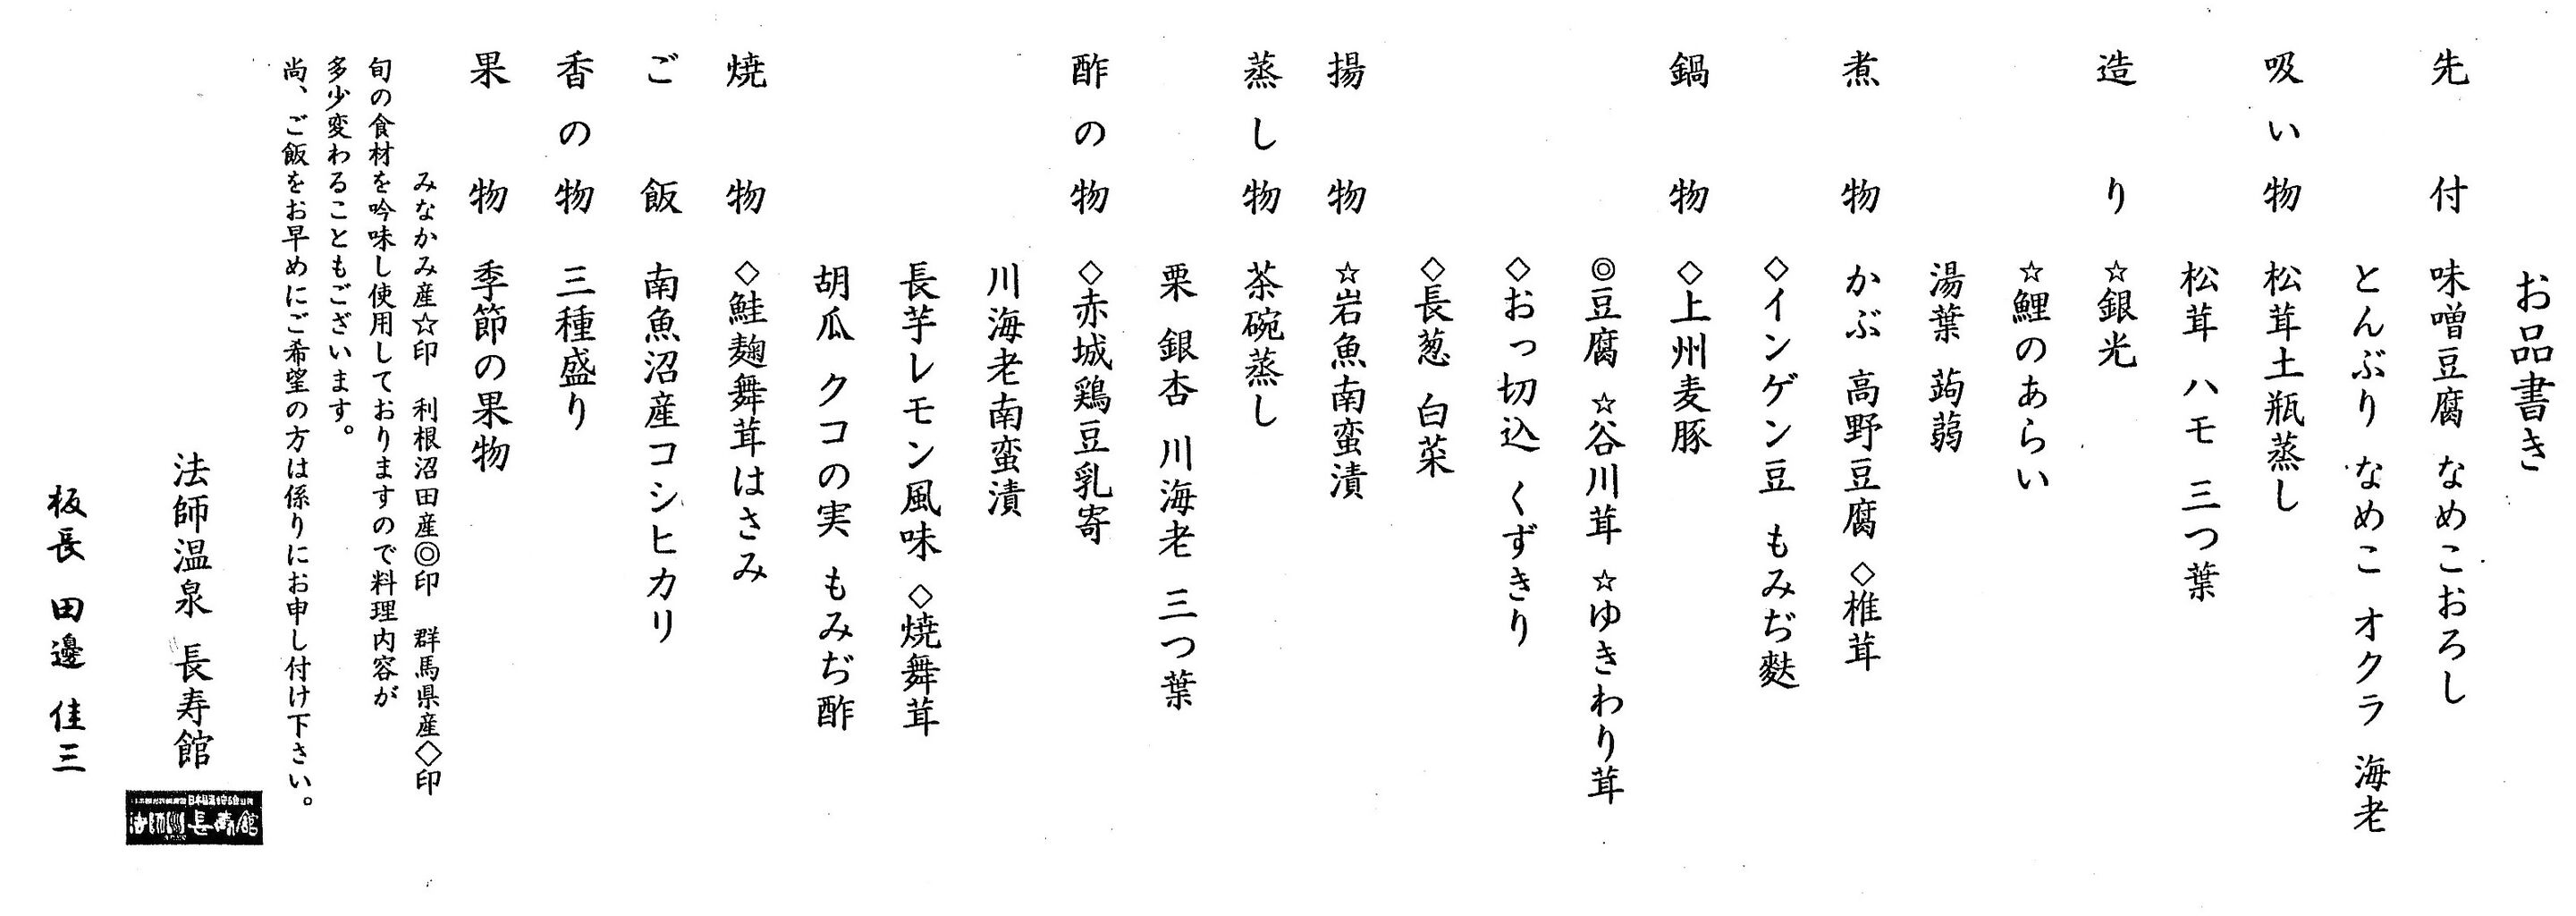 お品書き
先付 味噌豆腐 なめこおろし
とんぶり なめこ オクラ 海老
吸い物 松茸土瓶蒸し
松茸 ハモ 三つ葉
造り ☆銀光
☆鯉のあらい
湯葉 蒟蒻
煮物 かぶ 高野豆腐 ◇椎茸
◇インゲン豆 もみぢ麩
鍋物 ◇上州麦豚
◎豆腐 ☆谷川茸 ☆ゆきわり茸
◇おっ切込 くずきり
◇長葱 白菜
揚物 ☆岩魚南蛮漬
蒸し物 茶碗蒸し
栗 銀杏 川海老 三つ葉
酢の物 ◇赤城鶏豆乳寄
川海老南蛮漬
長芋レモン風味 ◇焼舞茸
胡瓜 クコの実 もみぢ酢
焼物 ◇鮭麹舞茸はさみ
ご飯 南魚沼産コシヒカリ
香の物 三種盛り
果物 季節の果物
みなかみ産☆印 利根沼田産◎印 群馬県産◇印
旬の食材を吟味し使用しておりますので料理内容が
多少変わることもございます。
尚、ご飯をお早めにご希望の方は係りにお申し付け下さい。
法師温泉 長寿館
法師 長寿館
板長 田邊 佳三